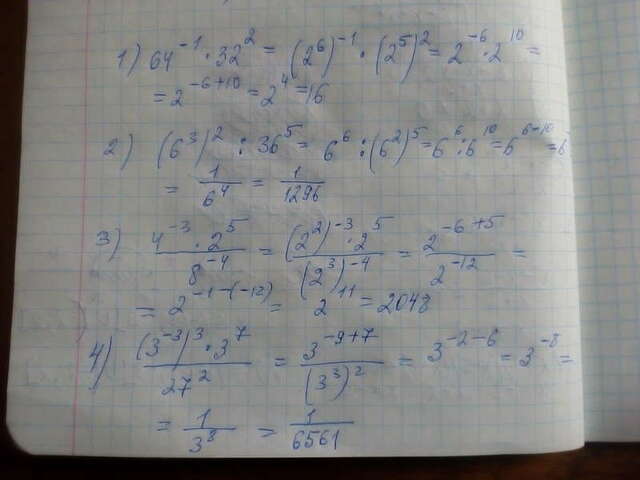 1) 64⁻¹ · 32² = (2⁶)⁻¹ · (2⁵)² = 2⁻⁶ · 2¹⁰ =
= 2⁻⁶⁺¹⁰ = 2⁴ = 16
2) (6³)² : 36⁵ = 6⁶ : (6²)⁵ = 6⁶ : 6¹⁰ = 6⁶⁻¹⁰ = 6
= 1/6⁴ = 1/1296
3) (4⁻³ · 2⁵)/8⁻⁴ = ((2²)⁻³ · 2⁵)/(2³)⁻⁴ = 2⁻⁶⁺⁵/2⁻¹² =
= 2⁻¹⁻⁽⁻¹²⁾ = 2¹¹ = 2048
4) ((3⁻³)³ · 3⁷)/27² = 3⁻⁹⁺⁷/(3³)² = 3⁻²⁻⁶ = 3⁻⁸ =
= 1/3⁸ = 1/6561